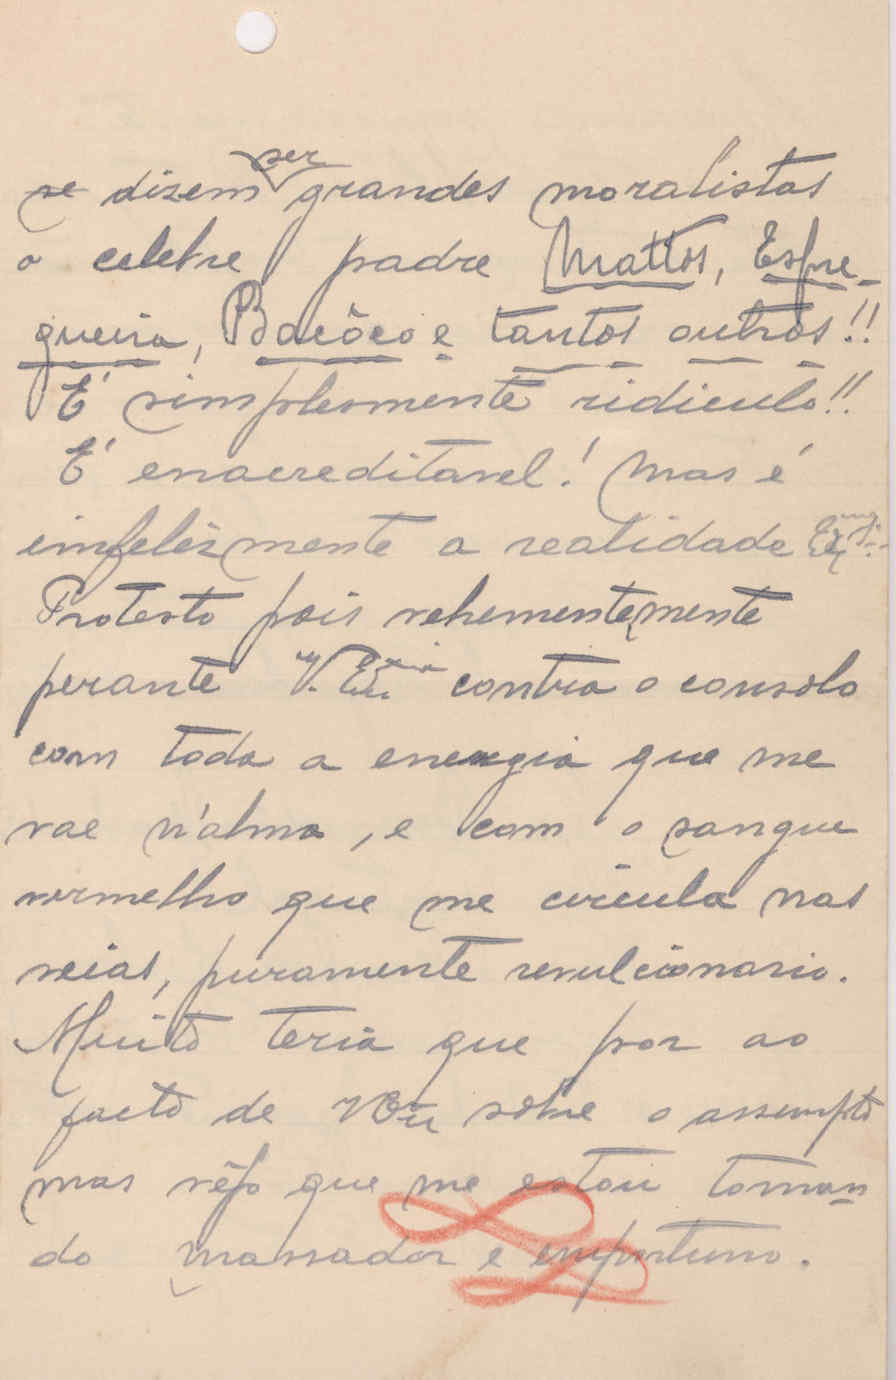 se dizem ser grandes moralistas
o celebre padre Mattos, Esfre-
gueira, Bacôco e tantos outros!!
É simplesmente ridiculo!!
É enacreditavel! Mas é
imfelêzmente a realidade Exmo Sr.
Protesto pois vehementemente
perante V. Excia contra o consolo
com toda a energia que me
vae n'alma, e com o sangue
vermelho que me circula nas
veias, puramente revulcionario.
Muito teria que por ao
facto de VExa sobre o assumpto
mas vêjo que me estou toman
do massador e emportuno.